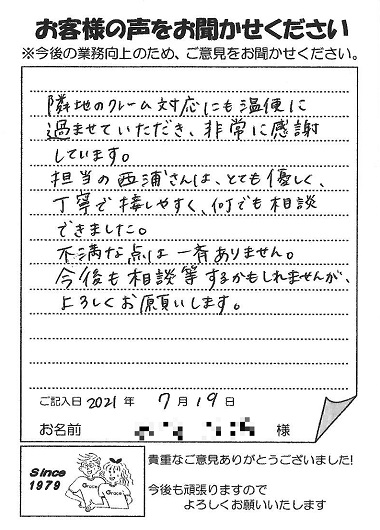 お客様の声をお聞かせください
※今後の業務向上のため、ご意見をお聞かせください。
隣地のクレーム対応にも温便に
過ませていただき、非常に感謝
しています。
担当の西浦さんは、とても優しく、
丁寧で接しやすく、何でも相談
できました。
不満な点は一斉ありません。
今後も相談等するかもしれませんが、
よろしくお願いします。
ご記入日 2021 年 7 月 19 日
お名前 様
Since
1979
Grace
Grace
貴重なご意見ありがとうございました!
今後も頑張りますので
よろしくお願いいたします